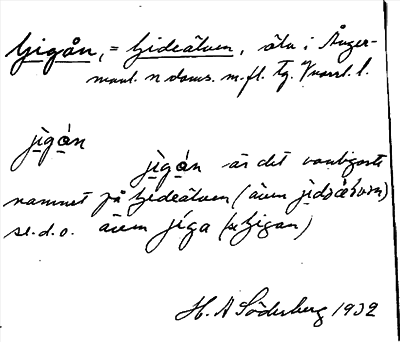 Gigån, = Gideälven, älv i Ånger-
manl. n doms. m. fl. tg. Vnorrl. l.
jìgá̀n
jìgá̀n är det vanligaste
namnet på Gideälven (även
se. d. o. även jíga (se Gigan)
H. A Söderberg 1932